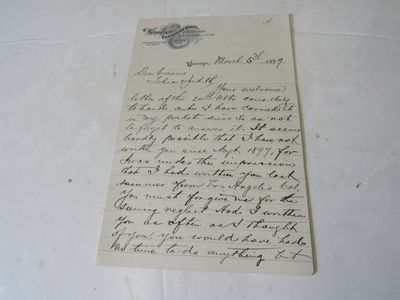 Chicago, March 5th 1899
Dear Cousins
Your welcome
letter of the 20th Ulto. came duly
to hand and I have carried it
in my pocket since so as not
to forget to answer it. It seems
hardly possible that I have not
written you since Sept 1897, for
I was under the impression
that I had written you last
summer from Los Angeles Cal.
You must forgive me for the
seeming neglect. Had I written
you as often as I thought
of you, you would have had
no time to do anything but